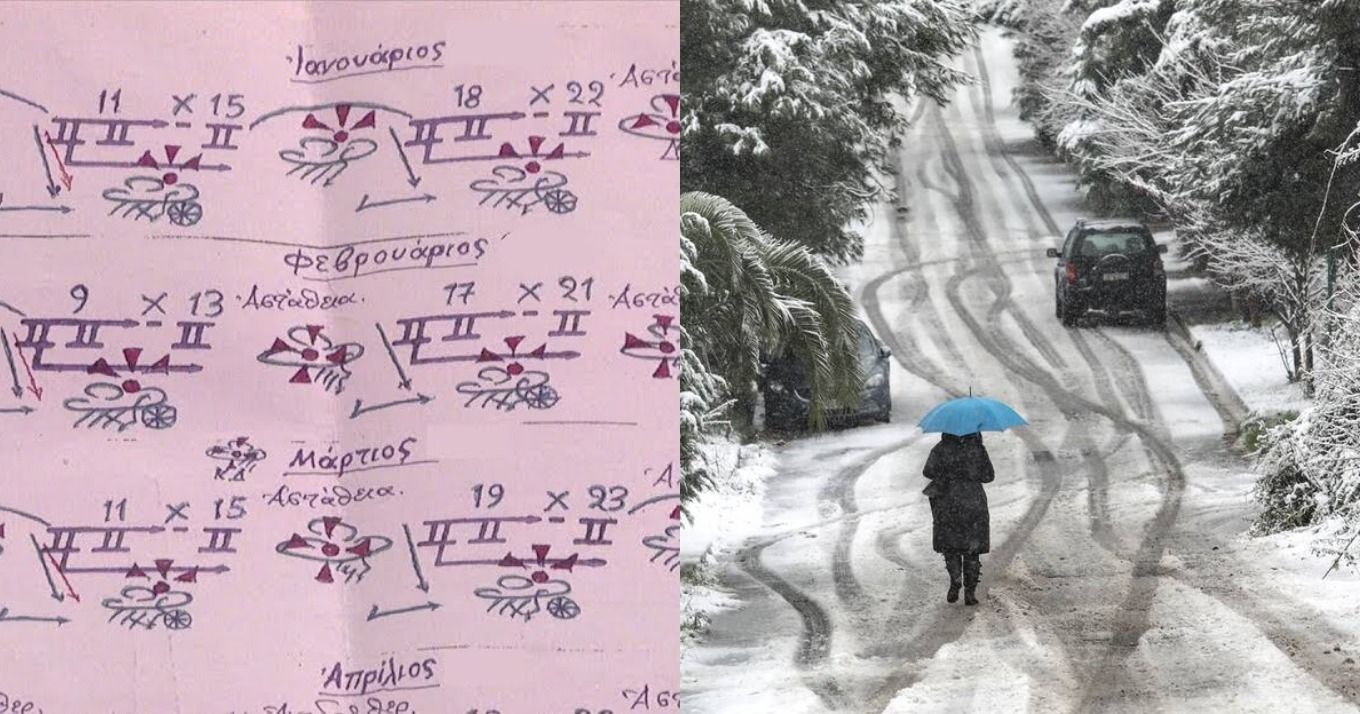 Ἰανουάριος
11 × 15 18 × 22
Φεβρουάριος
9 × 13 Ἀστάθεια. 17 × 21
Μάρτιος
Κ.Δ.
Ἀστάθεια.
11 × 15 19 × 23
Ἀπρίλιος